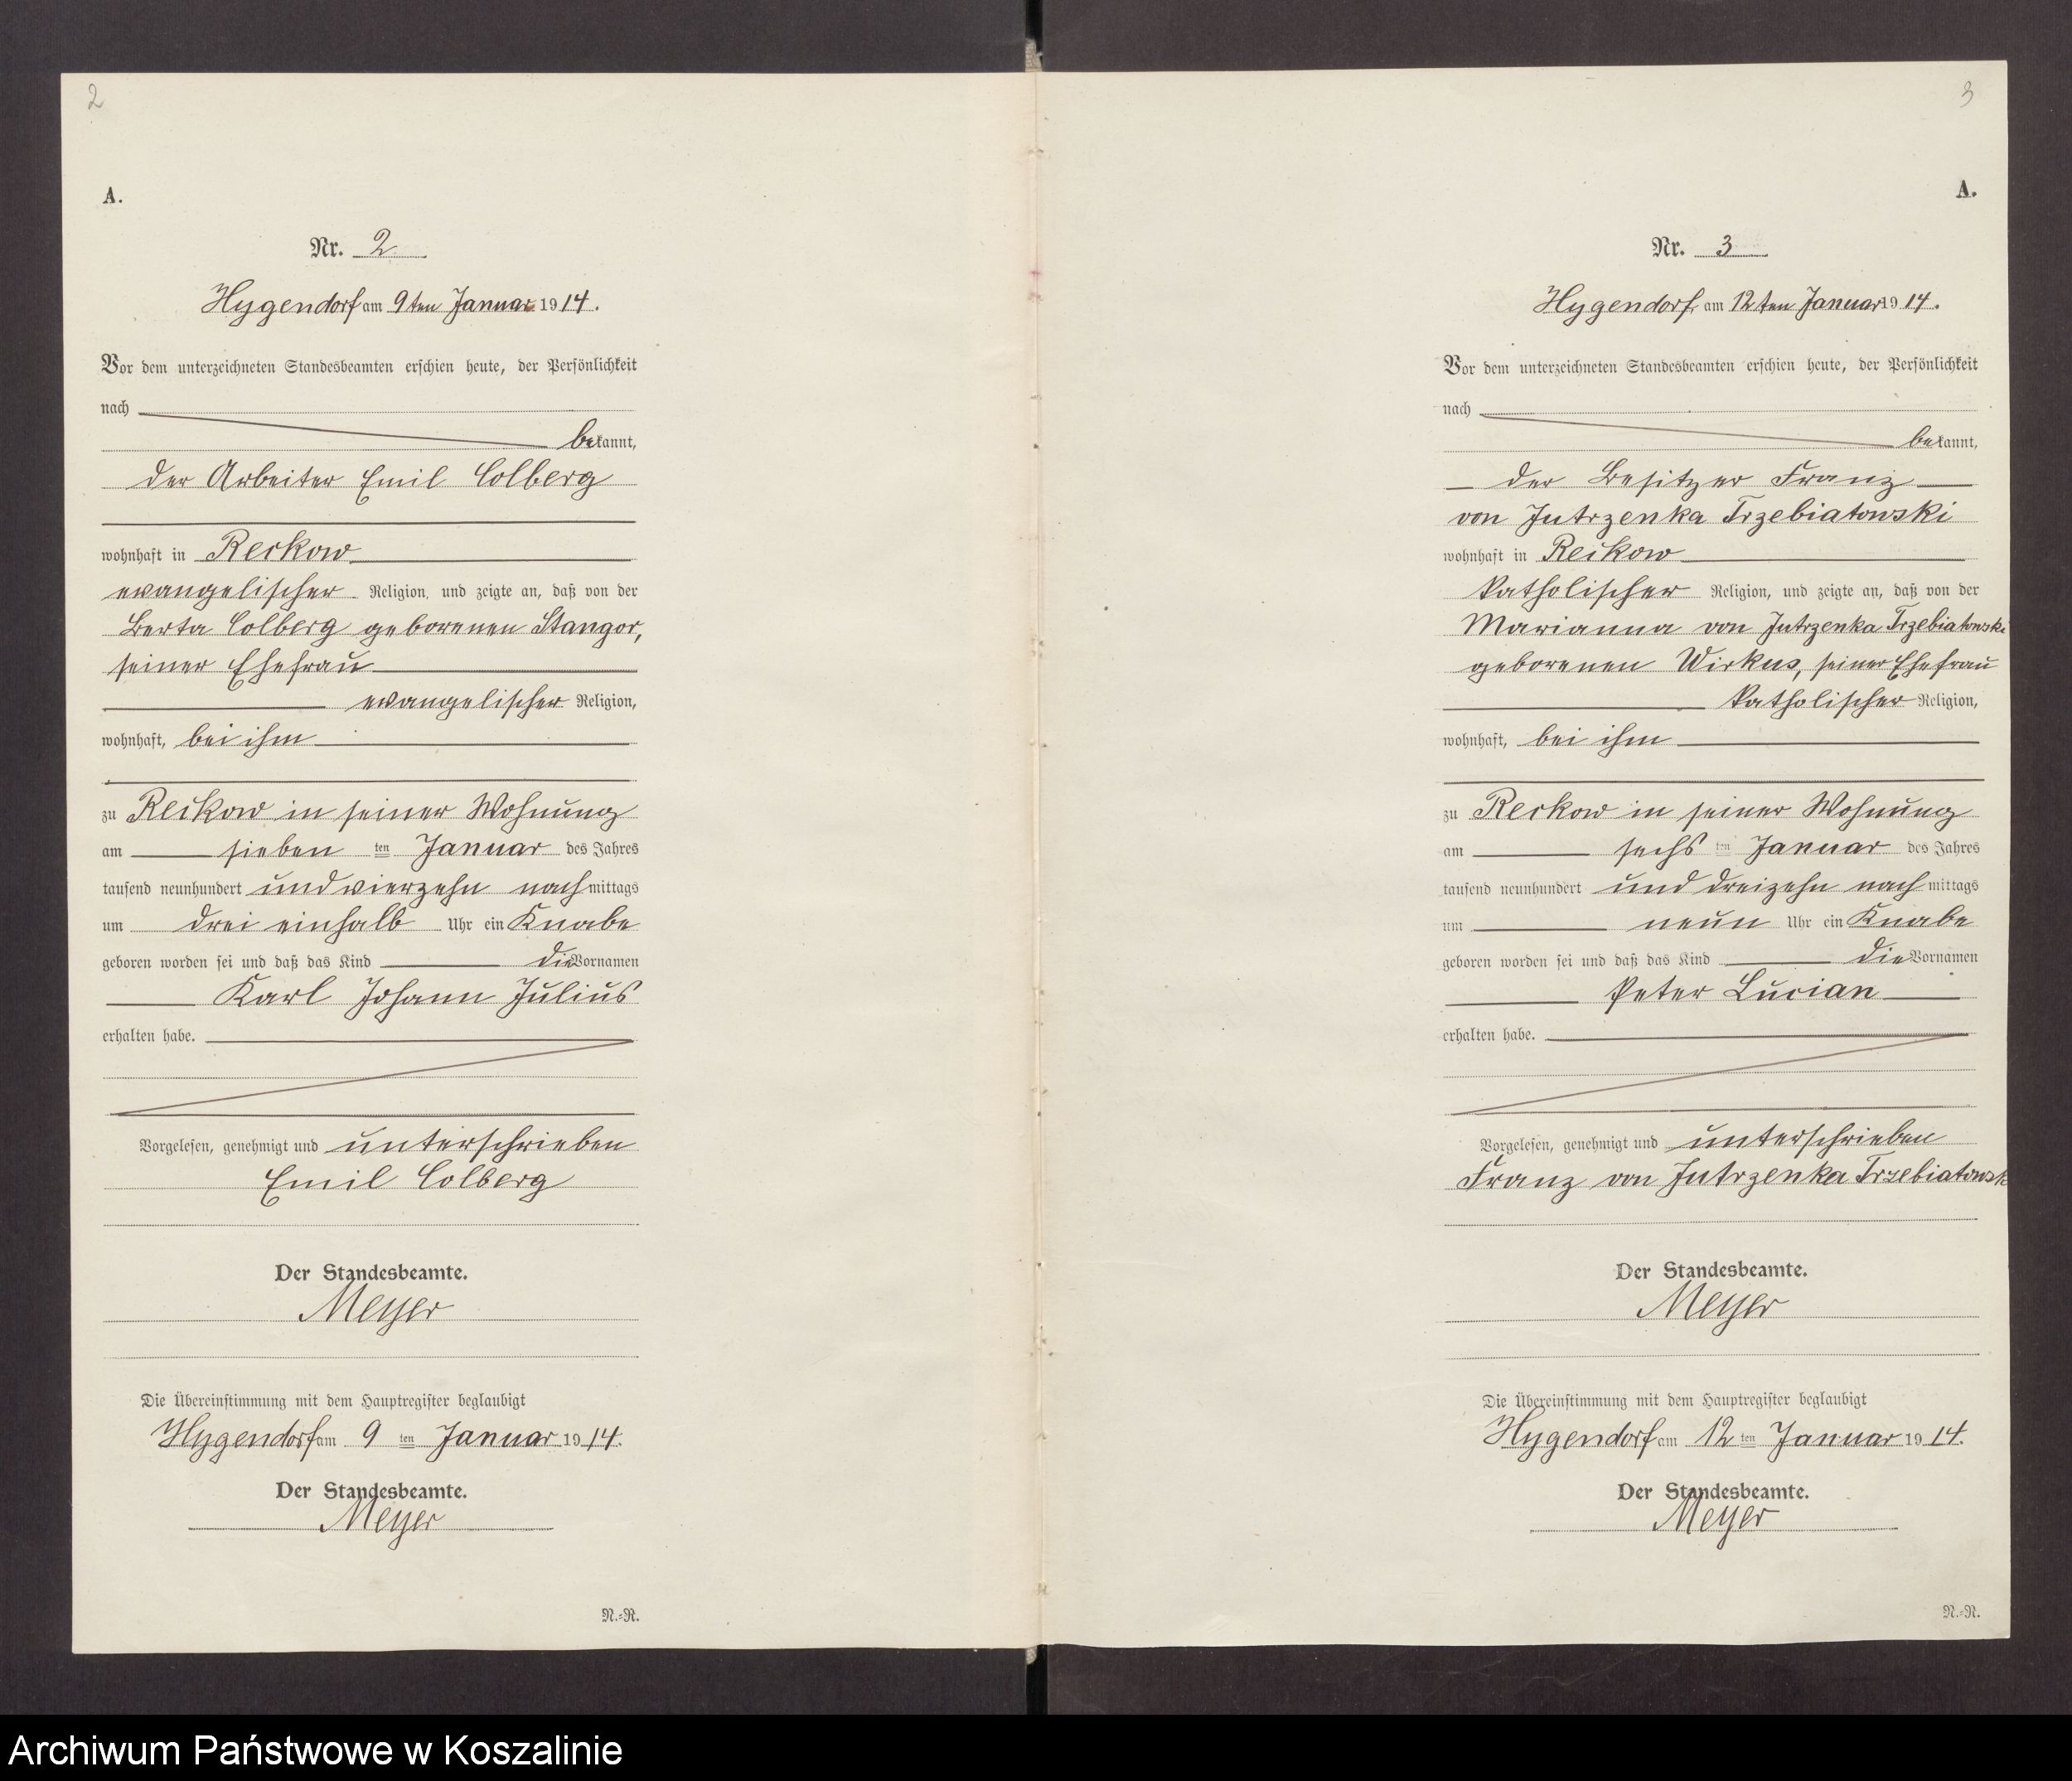 2
A.
Nr. 2
Hygendorf am 9ten Januar 1914.
Vor dem unterzeichneten Standesbeamten erschien heute, der Persönlichkeit
nach
bekannt,
der Arbeiter Emil Colberg
wohnhaft in Reckow
evangelischer Religion, und zeigte an, daß von der
Berta Colberg geborenen Stangor,
seiner Ehefrau
evangelischer Religion,
wohnhaft, bei ihm
zu Reckow in seiner Wohnung
am sieben ten Januar des Jahres
tausend neunhundert und vierzehn nachmittags
um drei einhalb Uhr ein Knabe
geboren worden sei und daß das Kind die Vornamen
Karl Johann Julius
erhalten habe.
Vorgelesen, genehmigt und unterschrieben
Emil Colberg
Der Standesbeamte.
Meyer
Die Übereinstimmung mit dem Hauptregister beglaubigt
Hygendorf am 9 ten Januar 1914.
Der Standesbeamte.
Meyer
N.-R.
3
A.
Nr. 3
Hygendorf am 12ten Januar 1914.
Vor dem unterzeichneten Standesbeamten erschien heute, der Persönlichkeit
nach
bekannt,
der Besitzer Franz
von Jutrzenka Trzebiatowski
wohnhaft in Reckow
katholischer Religion, und zeigte an, daß von der
Marianna von Jutrzenka Trzebiatowski
geborenen Wirkus, seiner Ehefrau
katholischer Religion,
wohnhaft, bei ihm
zu Reckow in seiner Wohnung
am sechs ten Januar des Jahres
tausend neunhundert und dreizehn nachmittags
um neun Uhr ein Knabe
geboren worden sei und daß das Kind die Vornamen
Peter Lucian
erhalten habe.
Vorgelesen, genehmigt und unterschrieben
Franz von Jutrzenka Trzebiatowsk
Der Standesbeamte.
Meyer
Die Übereinstimmung mit dem Hauptregister beglaubigt
Hygendorf am 12 ten Januar 1914.
Der Standesbeamte.
Meyer
N.-R.
Archiwum Państwowe w Koszalinie